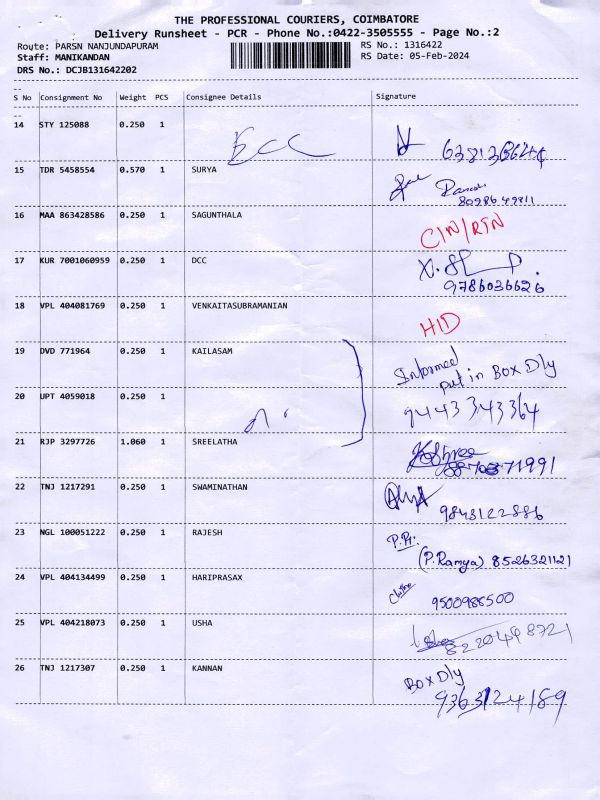 THE PROFESSIONAL COURIERS, COIMBATORE
Delivery Runsheet - PCR - Phone No.:0422-3505555 - Page No.:2
Route: PARSN NANJUNDAPURAM RS No.: 1316422
Staff: MANIKANDAN RS Date: 05-Feb-2024
DRS No.: DCJB131642202
S No Consignment No Weight PCS Consignee Details Signature
14 STY 125088 0.250 1
15 TDR 5458554 0.570 1 SURYA
8098649811
16 MAA 863428586 0.250 1 SAGUNTHALA
CIN/RTN
17 KUR 7001060959 0.250 1 DCC
9786036626
18 VPL 404081769 0.250 1 VENKAITASUBRAMANIAN
HID
19 DVD 771964 0.250 1 KAILASAM
Informed
put in Box Dly
20 UPT 4059018 0.250 1
9443343364
21 RJP 3297726 1.060 1 SREELATHA
22 TNJ 1217291 0.250 1 SWAMINATHAN
9843122886
23 NGL 100051222 0.250 1 RAJESH
(P.Ramya) 8526321121
24 VPL 404134499 0.250 1 HARIPRASAX
9500986500
25 VPL 404218073 0.250 1 USHA
8220498721
26 TNJ 1217307 0.250 1 KANNAN
Box Dly
9363124189